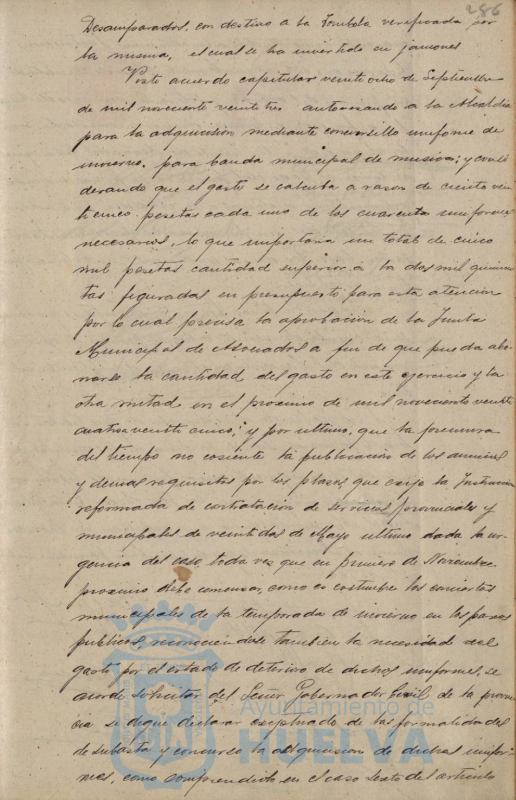 286
Desamparados, con destino a la Tombola verificada por
la misma, el cual se ha invertido en jamones
Visto acuerdo capitular veintiocho de Septiembre
de mil novecientos veintitres autorizando a la Alcaldia
para la adquisición mediante concursillo uniforme de
invierno, para banda municipal de musica; y consi
derando que el gasto se calcula a razon de ciento vein
ticinco pesetas cada uno de los cuarenta uniformes
necesarios, lo que importaria un total de cinco
mil pesetas cantidad superior a la dos mil quinien
tas figuradas en presupuesto para esta atencion
por lo cual precisa la aprobacion de la Junta
Municipal de Asociados a fin de que pueda abo
narse la cantidad del gasto en este ejercicio y la
otra mitad en el proximo de mil novecientos veinti
cuatro veinticinco; y por ultimo, que la premura
del tiempo no consiente la publicación de los anuncios
y demas requisitos por los plazos que exige la Instrucción
reformada de contratación de servicios provinciales y
municipales de veintidos de Mayo ultimo dada la ur
gencia del caso, toda vez que en primero de Noviembre
proximo debe comenzar, como es costumbre los conciertos
municipales de la temporada de invierno en los paseos
publicos, reconociendose tambien la necesidad del
gasto por el estado de deterioro de dichos uniformes, se
acordó solicitar del Señor Gobernador Civil de la provin
cia se digne declarar exceptuado de las formalidades
de subasta y concurso la adquisicion de dichos unifor
mes, como comprendido en el caso sexto del articulo
Ayuntamiento de
HUELVA